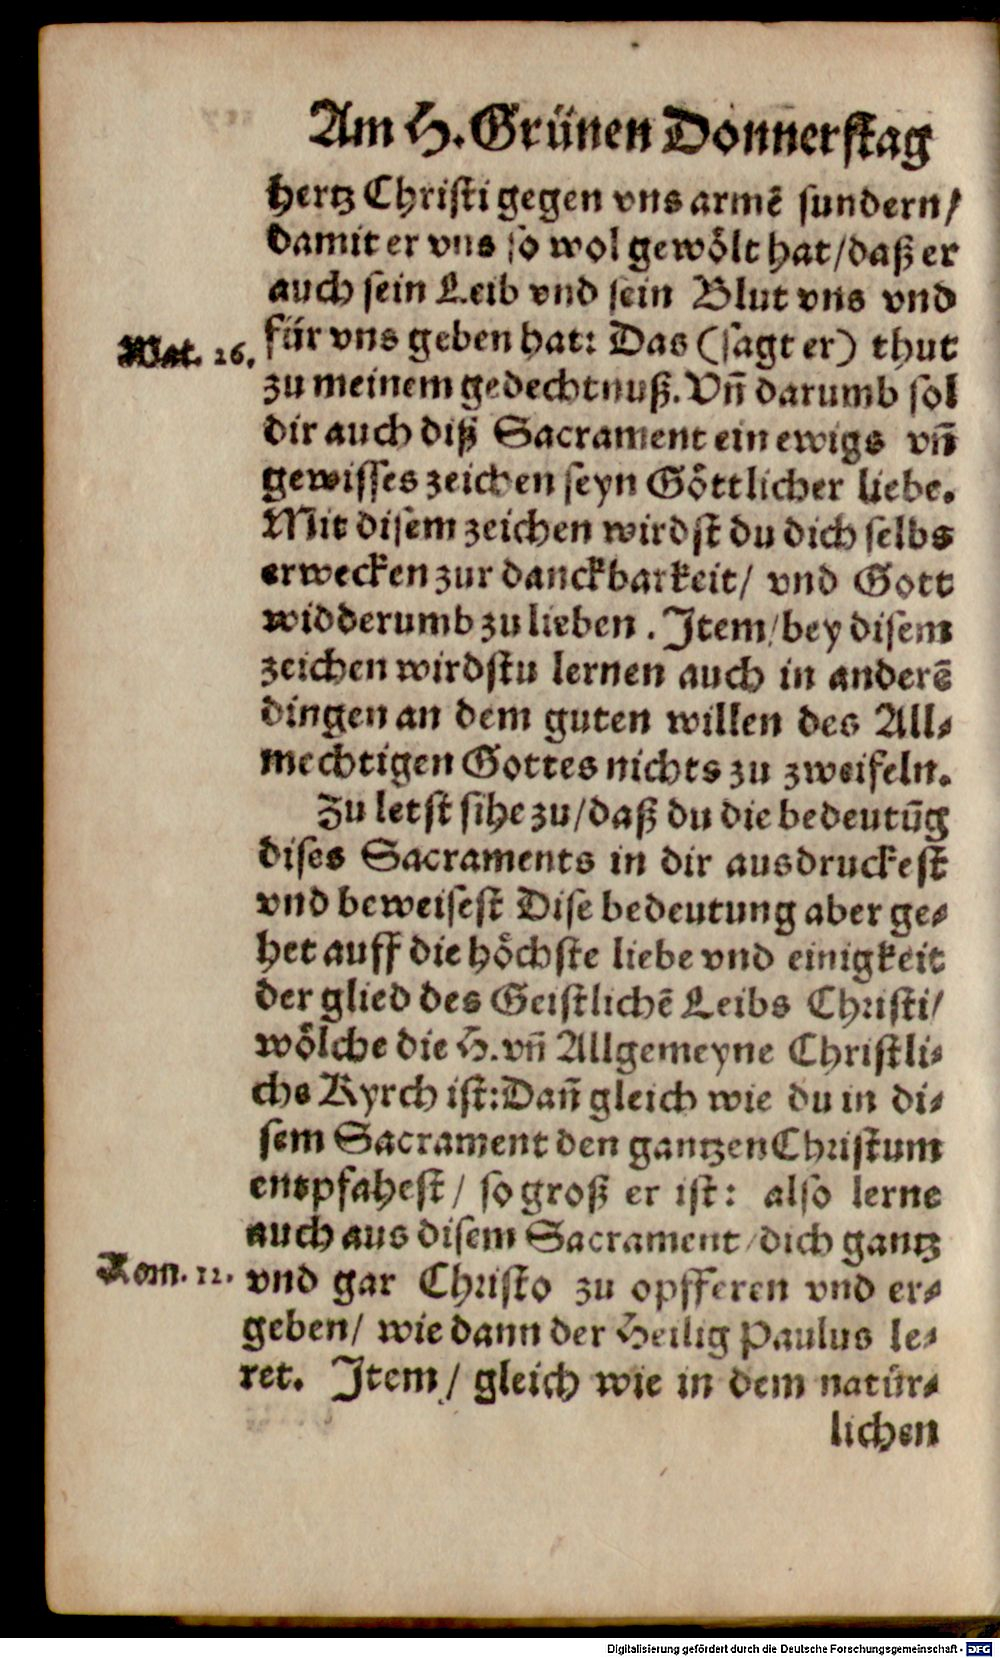 Am H. Grünen Donnerstag
hertz Christi gegen vns armē sundern/
damit er vns so wol gewölt hat/daß er
auch sein Leib vnd sein Blut vns vnd
für vns geben hat: Das (sagt er) thut
Mat. 26.
zu meinem gedechtnuß. Vñ darumb sol
dir auch diß Sacrament ein ewigs vñ
gewisses zeichen seyn Göttlicher liebe.
Mit disem zeichen wirdst du dich selbs
erwecken zur danckbarkeit/ vnd Gott
widderumb zu lieben. Item/bey disem
zeichen wirdstu lernen auch in anderē
dingen an dem guten willen des All-
mechtigen Gottes nichts zu zweifeln.
Zu letst sihe zu/daß du die bedeutūg
dises Sacraments in dir ausdruckest
vnd beweisest Dise bedeutung aber ge-
het auff die höchste liebe vnd einigkeit
der glied des Geistlichē Leibs Christi/
wölche die H. vñ Allgemeyne Christli-
che Kyrch ist: Dañ gleich wie du in di-
sem Sacrament den gantzen Christum
empfahest/ so groß er ist: also lerne
auch aus disem Sacrament/dich gantz
Rom. 12.
vnd gar Christo zu opfferen vnd er-
geben/ wie dann der Heilig Paulus le-
ret. Item/ gleich wie in dem natür-
lichen
Digitalisierung gefördert durch die Deutsche Forschungsgemeinschaft - DFG